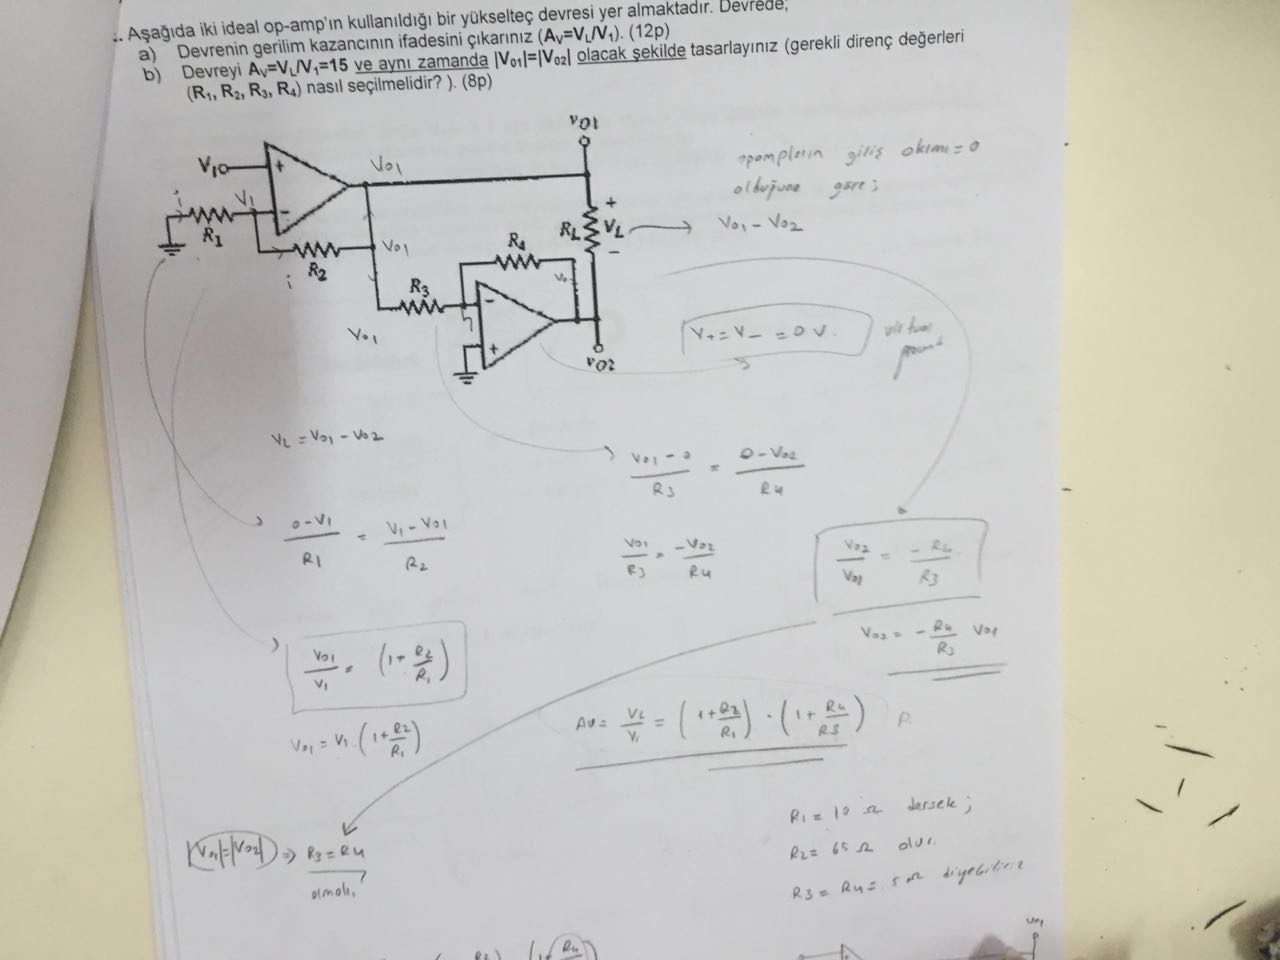 :. Aşağıda iki ideal op-amp'ın kullanıldığı bir yükselteç devresi yer almaktadır. Devrede;
a) Devrenin gerilim kazancının ifadesini çıkarınız (Av=VL/V1). (12p)
b) Devreyi Av=VL/V1=15 ve aynı zamanda |Vo1|=|Vo2| olacak şekilde tasarlayınız (gerekli direnç değerleri
(R1, R2, R3, R4) nasıl seçilmelidir? ). (8p)
vO1
V1
+
Vo1
opampların giriş akımı=0
olduğuna göre;
i
V1
-
R1
+
RL
VL
-
Vo1 - Vo2
Vo1
R2
i
R4
R3
Vo
-
+
Vo1
vO2
V+ = V- = 0 V.
virtual
ground
VL = Vo1 - Vo2
Vo1 - 0 / R3 = 0 - Vo2 / R4
0 - V1 / R1 = V1 - Vo1 / R2
Vo1 / R3 = -Vo2 / R4
Vo2 / Vo1 = - R4 / R3
Vo2 = - R4 / R3 Vo1
Vo1 / V1 = (1 + R2 / R1)
Vo1 = V1 . (1 + R2 / R1)
AV = VL / V1 = (1 + R2 / R1) . (1 + R4 / R3)
R1 = 10 Ω dersek;
R2 = 65 Ω olur.
R3 = R4 = 5 Ω diyebiliriz
|Vo1|=|Vo2| => R3 = R4
olmalı.
R2
(1+ R4
Vo1